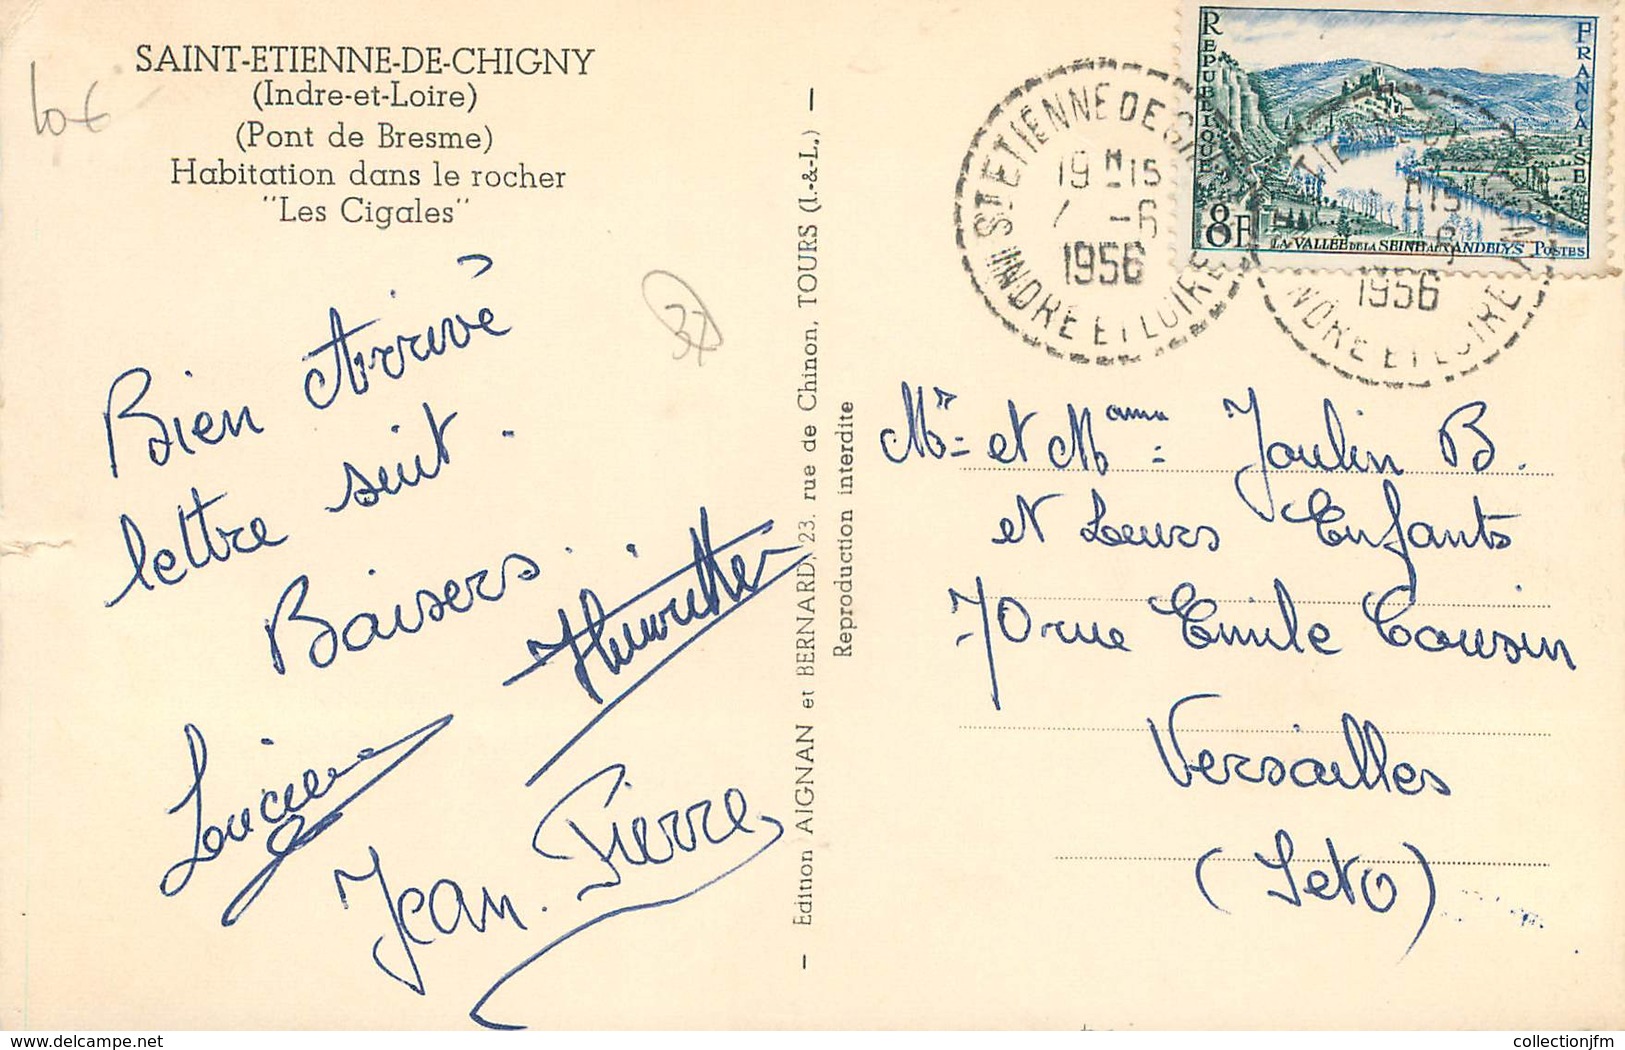 SAINT-ETIENNE-DE-CHIGNY
(Indre-et-Loire)
(Pont de Bresme)
Habitation dans le rocher
"Les Cigales"
10€
37
Bien Arrivé
lettre suit.
Baisers.
Henriette
Lucien
Jean. Pierre
— Edition AIGNAN et BERNARD, 23. rue de Chinon, TOURS (I.-&-L.) —
Reproduction interdite
REPUBLIQUE
FRANCAISE
8F
LA VALLÉE DE LA SEINE AUX ANDELYS POSTES
ST ETIENNE DE
19H15
-6
1956
INDRE ET LOIRE
1956
INDRE ET LOIRE
Mr et Mame Joulin B.
et Leurs Enfants
70 rue Emile Cousin
Versailles
(Seto)
delcampe.net
collectionjfm